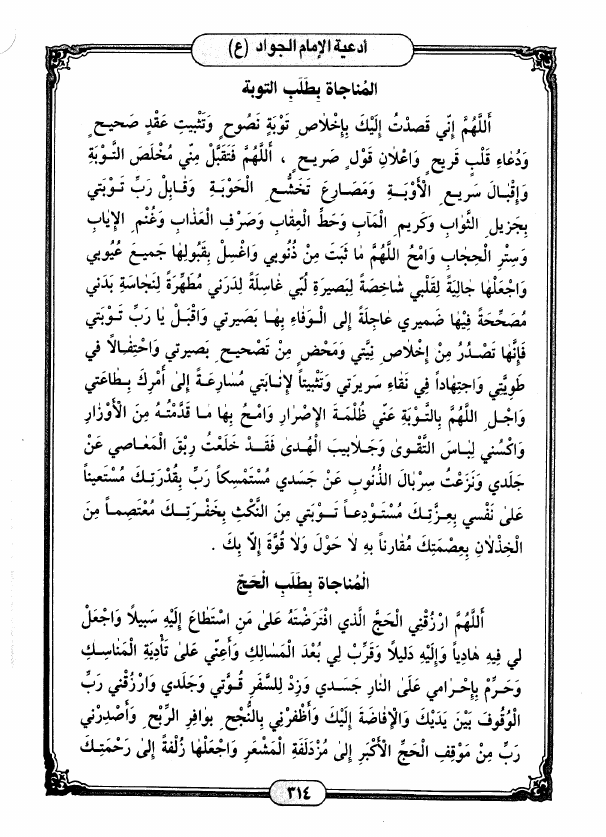 أدعية الإمام الجواد (ع)
المُناجاة بِطَلَبِ التوبة
أَللَّهُمَّ إِنّي قَصَدْتُ إِلَيْكَ بِإِخْلاٰصِ تَوْبَةٍ نَصُوحٍ وَتَثْبيتِ عَقْدٍ صَحيحٍ
وَدُعٰاءِ قَلْبٍ قَريحٍ وَاعْلاٰنِ قَوْلٍ صَريحٍ ، أَللَّهُمَّ فَتَقَبَّلْ مِنّي مُخْلَصَ التَّوْبَةِ
وَإِقْبٰالَ سَريعِ الْأَوْبَةِ وَمَصٰارِعَ تَخَشُّعِ الْحَوْبَةِ وَقٰابِلْ رَبِّ تَوْبَتي
بِجَزيلِ الثَّوٰابِ وَكَريمِ الْمَآبِ وَحَطِّ الْعِقٰابِ وَصَرْفِ الْعَذٰابِ وَغُنْمِ الإِيٰابِ
وَسِتْرِ الْحِجٰابِ وَامْحُ اللَّهُمَّ مٰا ثَبَتَ مِنْ ذُنُوبي وَاغْسِلْ بِقَبُولِهٰا جَميعَ عُيُوبي
وَاجْعَلْهٰا جٰالِيَةً لِقَلْبي شٰاخِصَةً لِبَصيرَةِ لُبّي غٰاسِلَةً لِدَرَني مُطَهِّرَةً لِنَجٰاسَةِ بَدَني
مُصَحِّحَةً فيهٰا ضَميري عٰاجِلَةً إِلى الْوَفٰاءِ بِهٰا بَصيرَتي وَاقْبَلْ يٰا رَبِّ تَوْبَتي
فَإِنَّهٰا تَصْدُرُ مِنْ إِخْلاٰصِ نِيَّتي وَمَحْضٍ مِنْ تَصْحيحِ بَصيرَتي وَاحْتِفٰالاً في
طَوِيَّتي وَاجْتِهٰاداً في نَقٰاءِ سَريرَتي وَتَثْبيتاً لِإِنٰابَتي مُسٰارِعَةً إِلى أَمْرِكَ بِطٰاعَتي
وَاجْلِ اللَّهُمَّ بِالتَّوْبَةِ عَنّي ظُلْمَةَ الإِصْرٰارِ وَامْحُ بِهٰا مٰا قَدَّمْتُهُ مِنَ الْأَوْزٰارِ
وَاكْسُني لِبٰاسَ التَّقْوىٰ وَجَلاٰبيبَ الْهُدىٰ فَقَدْ خَلَعْتُ رِبْقَ الْمَعٰاصي عَنْ
جَلَدي وَنَزَعْتُ سِرْبٰالَ الذُّنُوبِ عَنْ جَسَدي مُسْتَمْسِكاً رَبِّ بِقُدْرَتِكَ مُسْتَعيناً
عَلىٰ نَفْسي بِعِزَّتِكَ مُسْتَوْدِعاً تَوْبَتي مِنَ النَّكْثِ بِخَفْرَتِكَ مُعْتَصِماً مِنَ
الْخِذْلاٰنِ بِعِصْمَتِكَ مُقٰارِناً بِهِ لاٰ حَوْلَ وَلاٰ قُوَّةَ إِلاّٰ بِكَ .
الْمُناجاة بِطَلَبِ الْحَجِّ
أَللَّهُمَّ ارْزُقْنِي الْحَجَّ الَّذي افْتَرَضْتَهُ عَلىٰ مَنِ اسْتَطٰاعَ إِلَيْهِ سَبيلاً وَاجْعَلْ
لي فيهِ هٰادِياً وَإِلَيْهِ دَليلاً وَقَرِّبْ لي بُعْدَ الْمَسٰالِكِ وَأَعِنّي عَلىٰ تَأْدِيَةِ الْمَنٰاسِكِ
وَحَرِّمْ بِإِحْرٰامي عَلَى النّٰارِ جَسَدي وَزِدْ لِلسَّفَرِ قُوَّتي وَجَلَدي وَارْزُقْني رَبِّ
الْوُقُوفَ بَيْنَ يَدَيْكَ وَالْإِفٰاضَةَ إِلَيْكَ وَأَظْفِرْني بِالنُّجْحِ بِوٰافِرِ الرِّبْحِ وَأَصْدِرْني
رَبِّ مِنْ مَوْقِفِ الْحَجِّ الْأَكْبَرِ إِلىٰ مُزْدَلِفَةِ الْمَشْعَرِ وَاجْعَلْهٰا زُلْفَةً إِلىٰ رَحْمَتِكَ
٣١٤